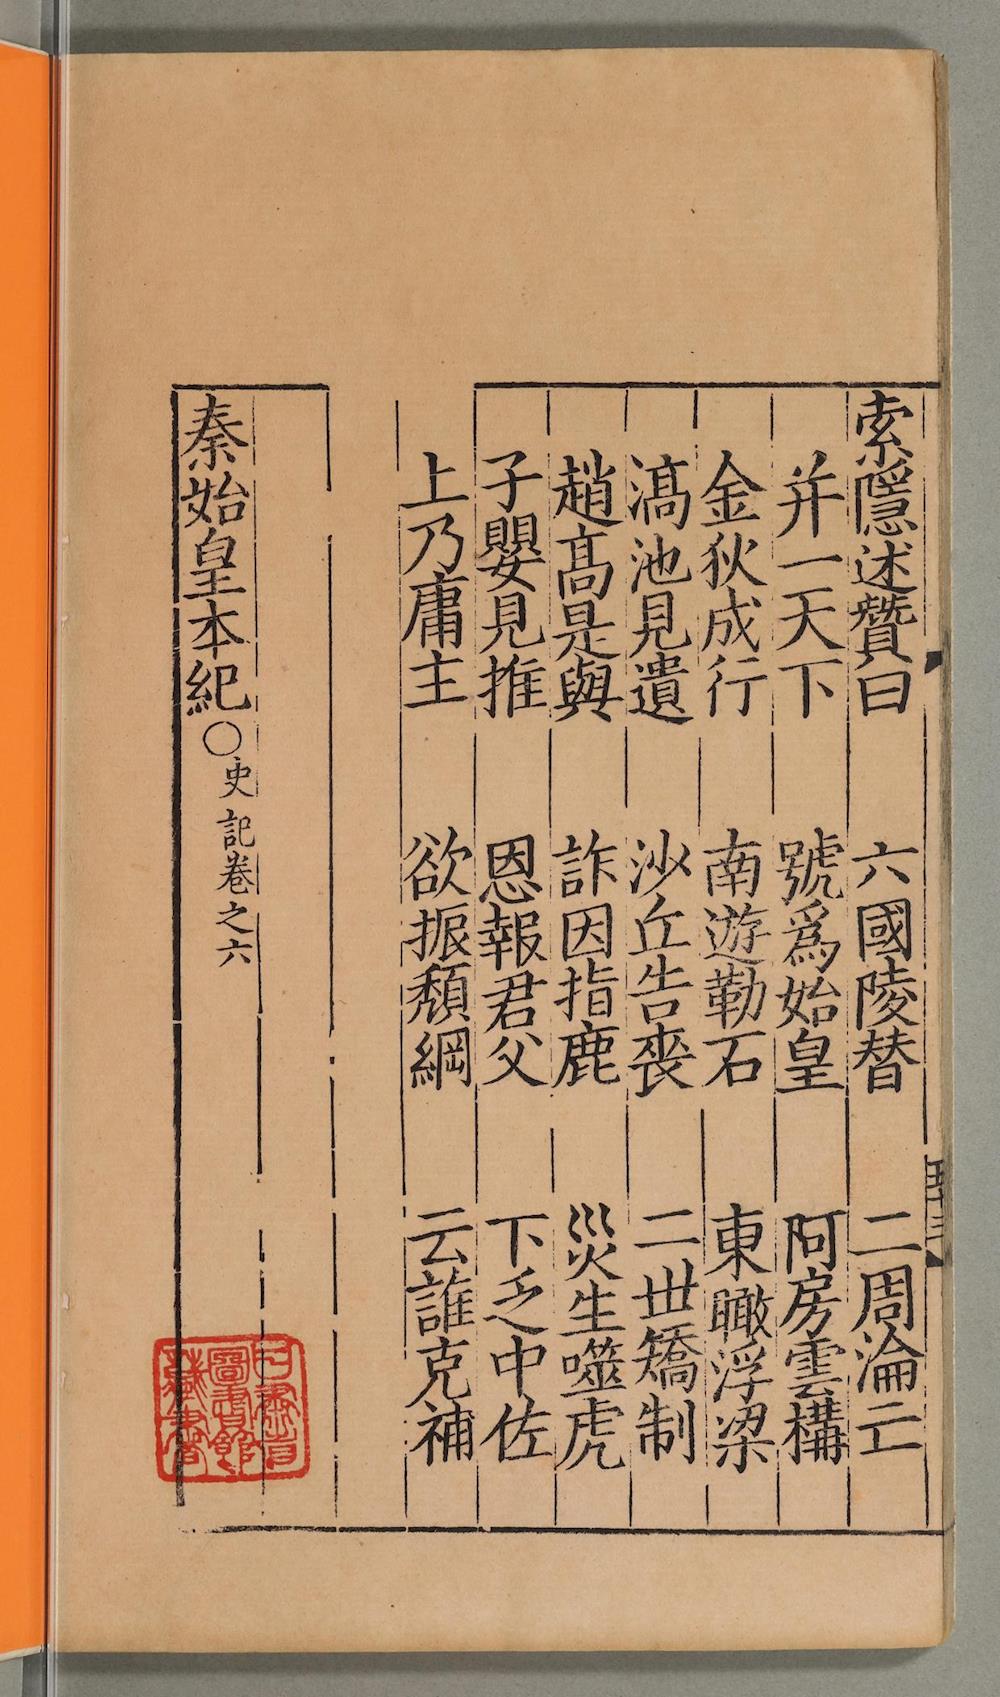 索隱述贊曰　六國陵替　二周淪亡
并一天下　號爲始皇　阿房雲構
金狄成行　南遊勒石　東瞰浮梁
滈池見遺　沙丘告喪　二世矯制
趙髙是與　詐因指鹿　災生噬虎
子嬰見推　恩報君父　下乏中佐
上乃庸主　欲振頹綱　云誰克補
秦始皇本紀○史記卷之六
甘肅省
圖書館
藏書